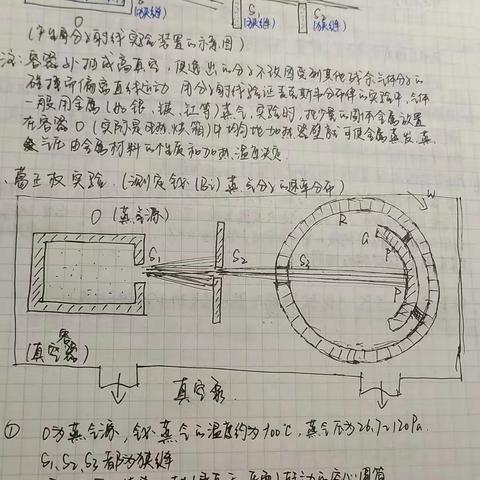 S₁
(狭缝)
S₂
(狭缝)
O
(产生分子射线实验装置的示意图)
注:容器外抽成高真空,使逸出的分子不致因受到其他残余气体分子的
碰撞而偏离直线运动 用分子射线验证麦克斯韦分布律的实验中,气体
一般用金属(如银、铋、铊等)蒸气,实验时,把少量的固体金属放置
在容器O(实际是加热烧箱)中均匀地加热器壁就可使金属蒸发,蒸
气压由金属材料的性质和加热温度决定.
葛正权实验.(测定铋(Bi)蒸气分子的速率分布)
O(蒸气源)
S₁
S₂
S₃
R
G
P'
P
W
(真空容器)
真空泵.
① O为蒸气源,铋蒸气的温度约为900℃,蒸气压为26.7~120Pa.
S₁、S₂、S₃都为狭缝